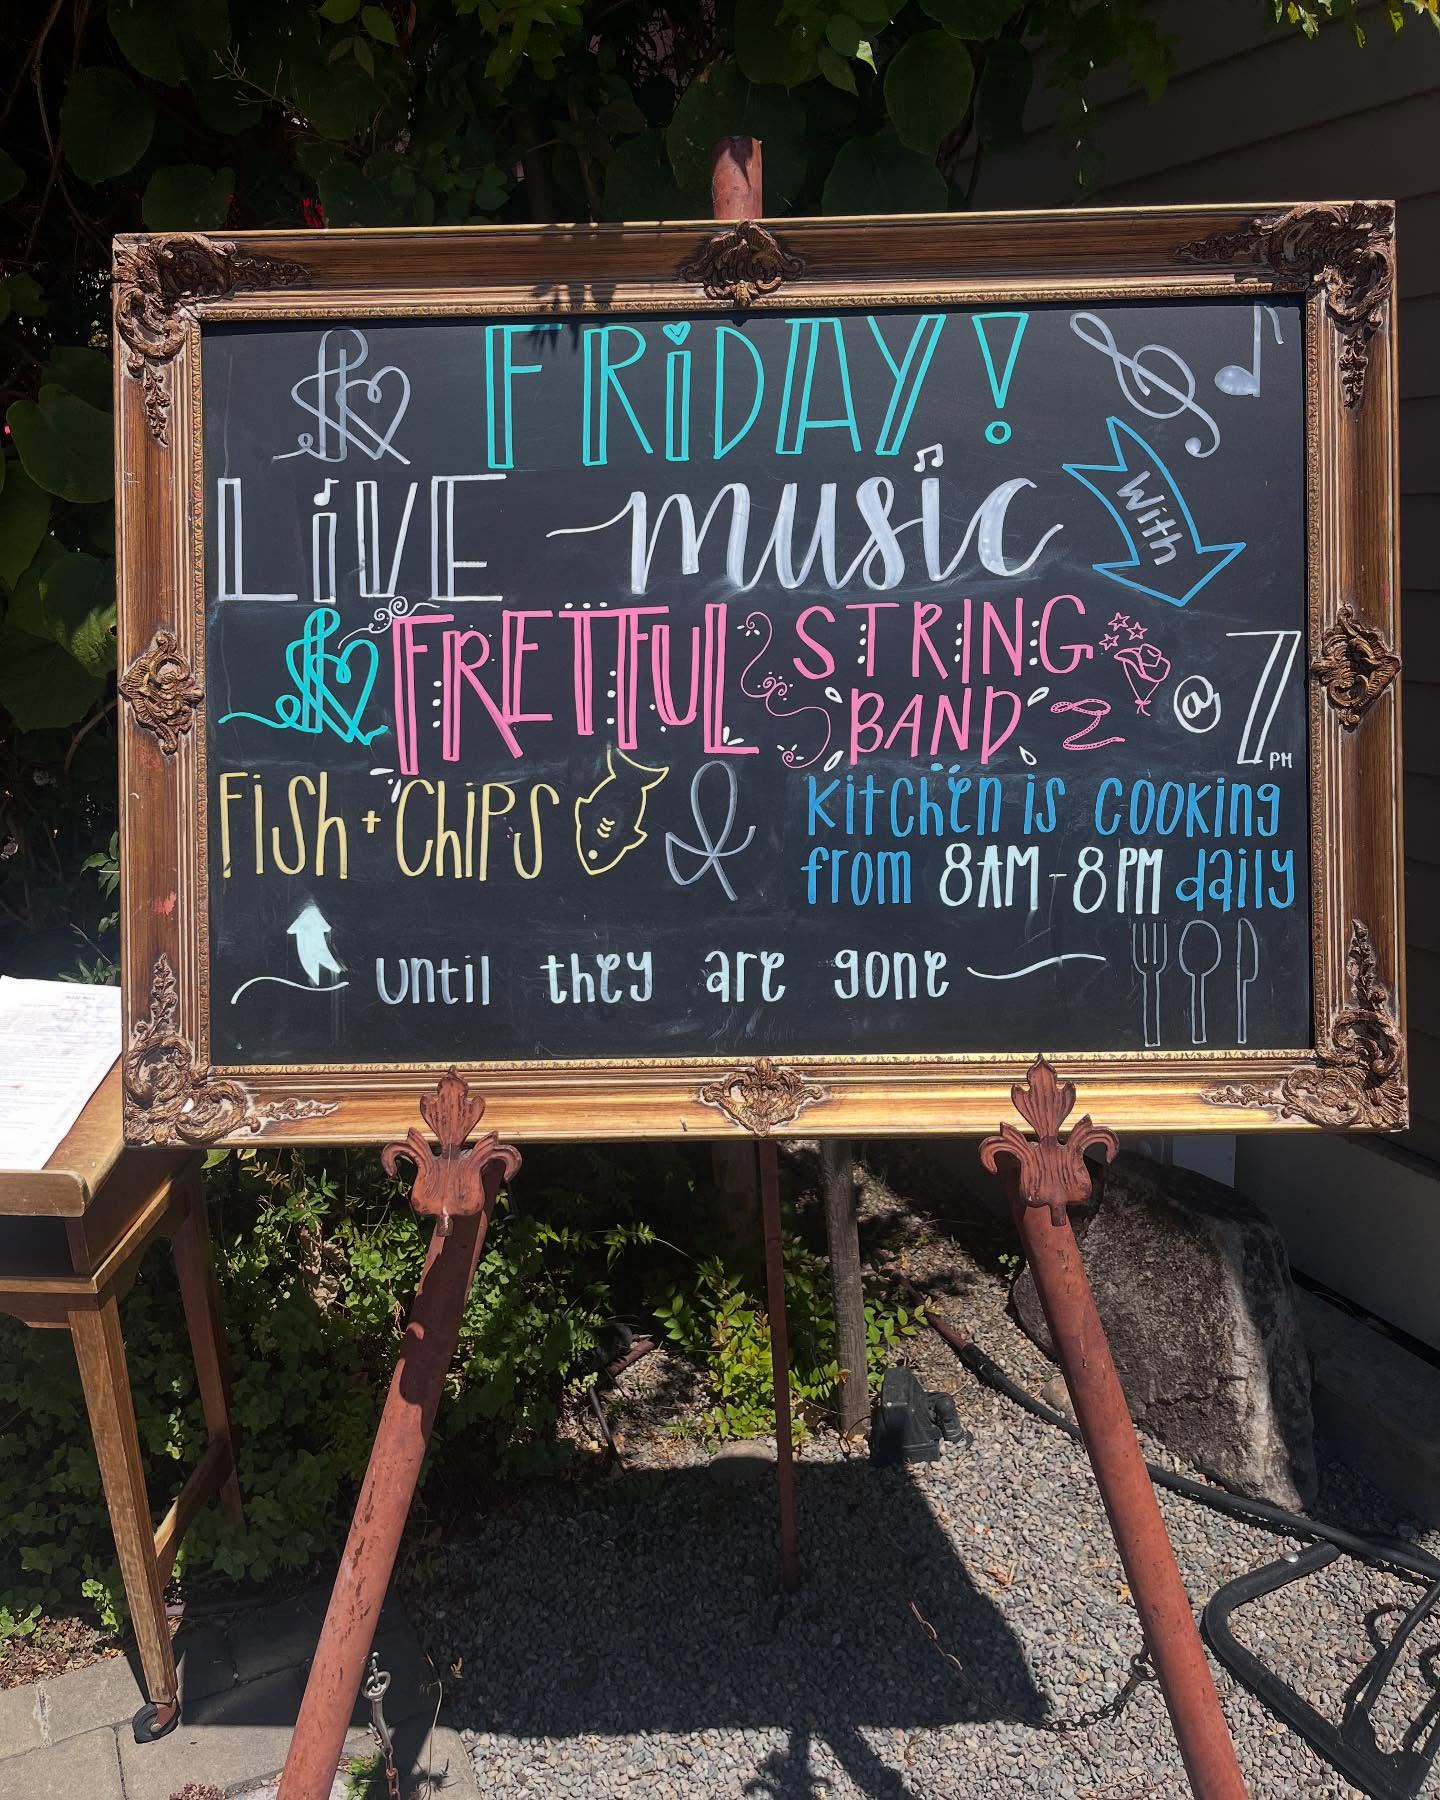 FRiDAY!
LiVE music With
FRETFUL STRING BAND @ 7PM
FiSh + ChiPS & kitchen is cooking
from 8AM-8PM daily
until they are gone